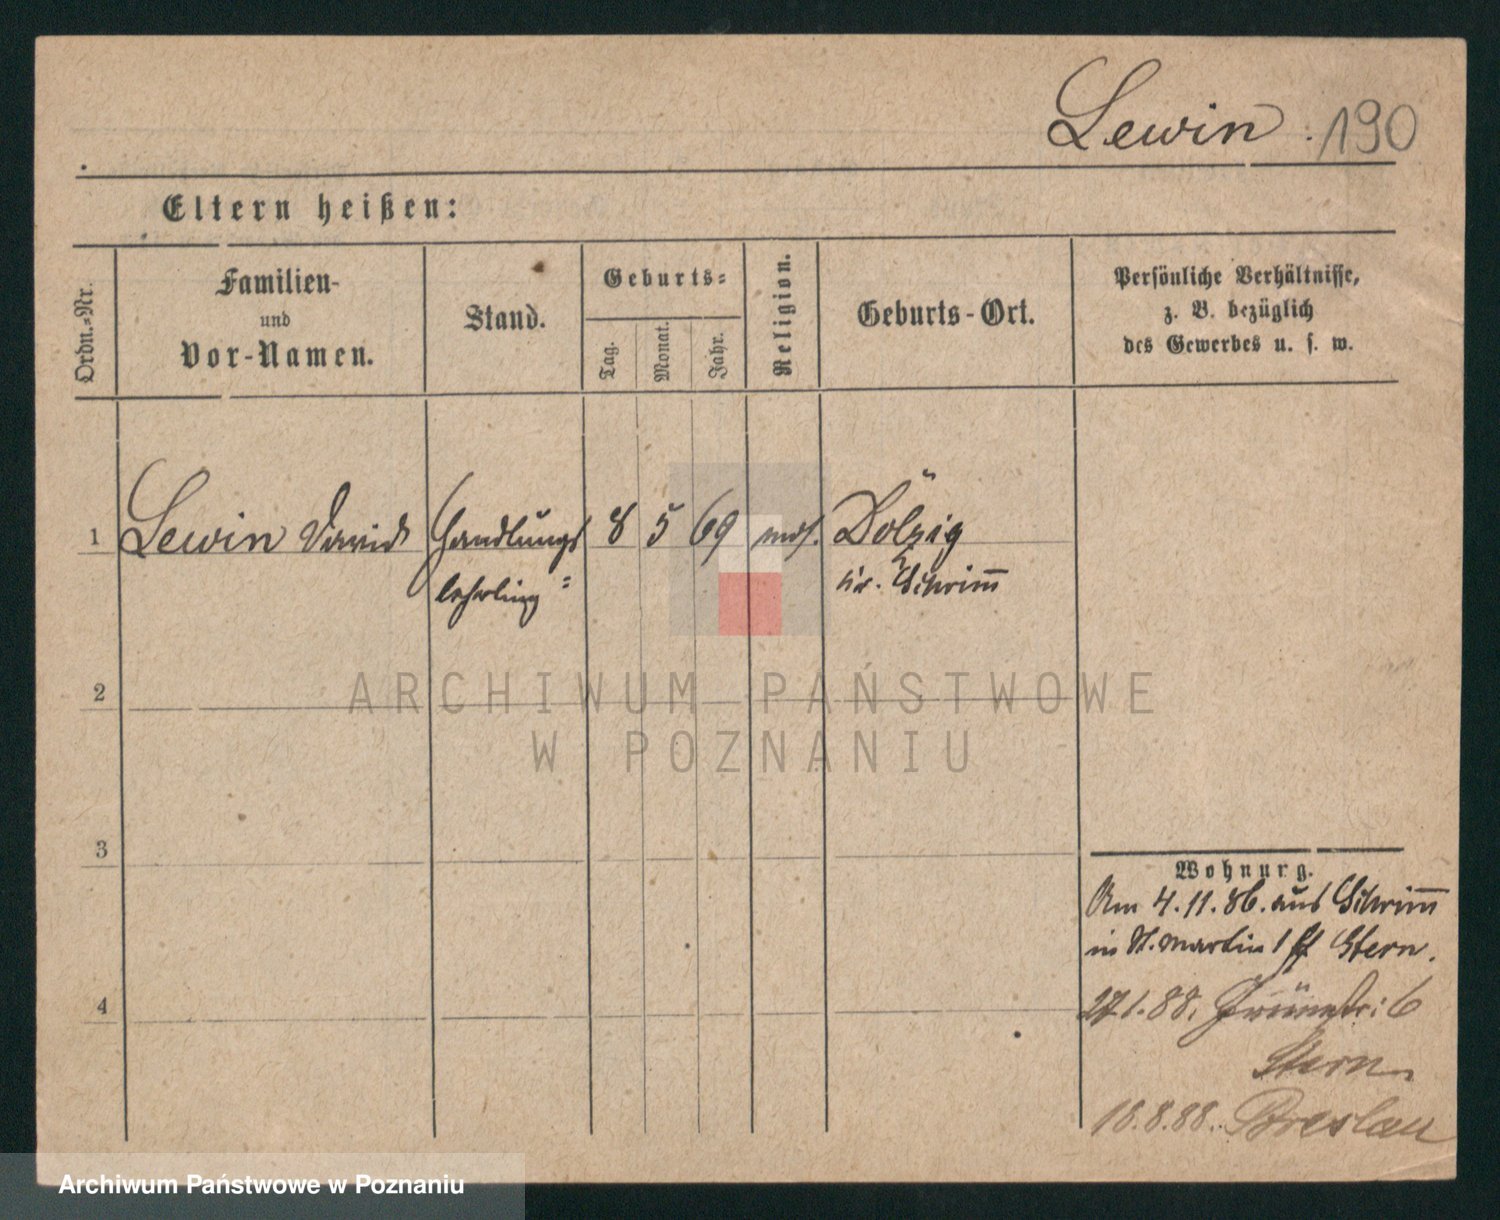 Lewin . 190
Eltern heißen:
Ordn.-Nr.
Familien-
und
Vor-Namen.
Stand.
Geburts-
Tag.
Monat.
Jahr.
Religion.
Geburts-Ort.
Persönliche Verhältnisse,
z. B. bezüglich
des Gewerbes u. s. w.
1 Lewin David Handlungs 8 5 69 mos. Dolzig
lehrling Kr. Schrim̅
2
3
4
ARCHIWUM PAŃSTWOWE
W POZNANIU
Wohnung.
Am 4.11.86. aus Schrim̅
in St. Martin 1 Stern.
27.1.88. Grünestr: 6
Stern.
18.8.88. Breslau
Archiwum Państwowe w Poznaniu